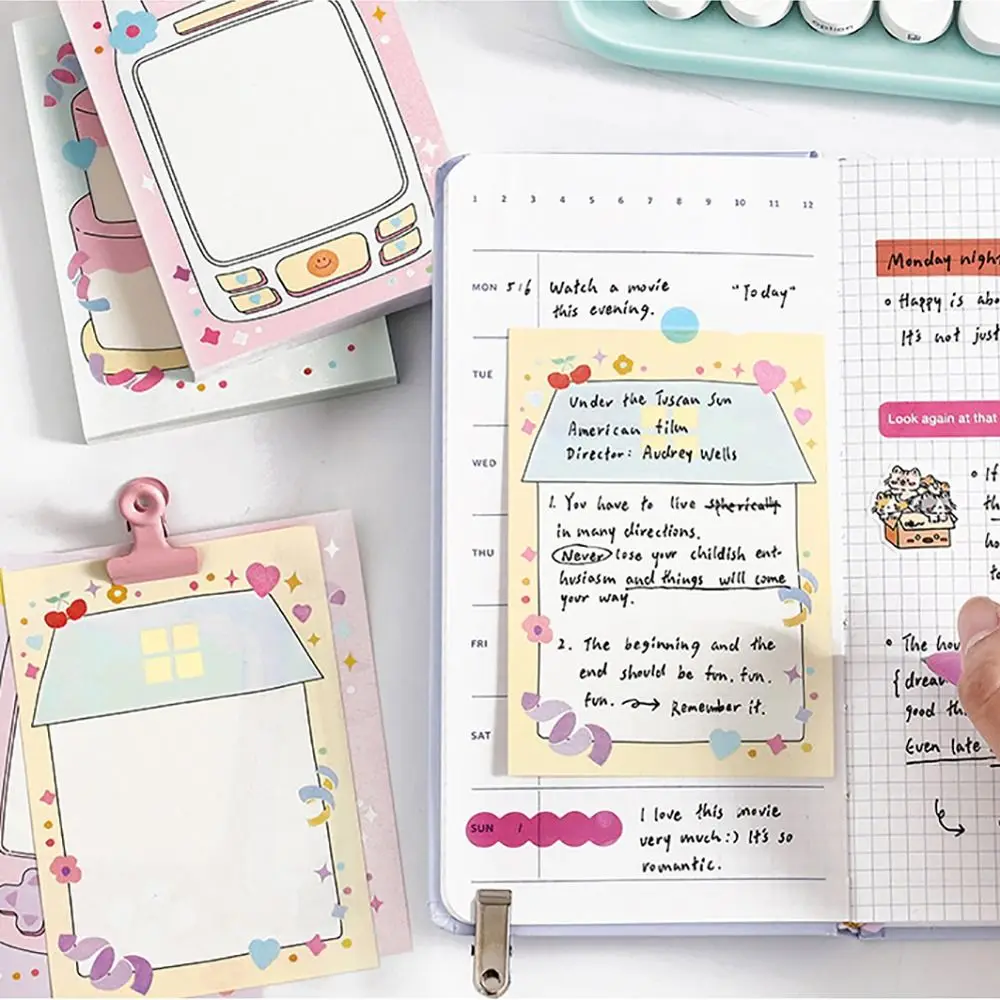 option
1 2 3 4 5 6 7 8 9 10 11 12
MON 5 16 Watch a movie "Today"
this evening.
TUE
WED
THU
FRI
SAT
SUN 1
Under the Tuscan Sun
American film
Director: Audrey Wells
1. You have to live spherically
in many directions.
Never lose your childish ent-
husiasm and things will come
your way.
2. The beginning and the
end should be fun. fun.
fun. → Remember it.
I love this movie
very much:) It's so
romantic.
Monday nigh
Happy is abo
It's not just
Look again at that
If
th
ho
to
The hou
{drea
good th
Even late